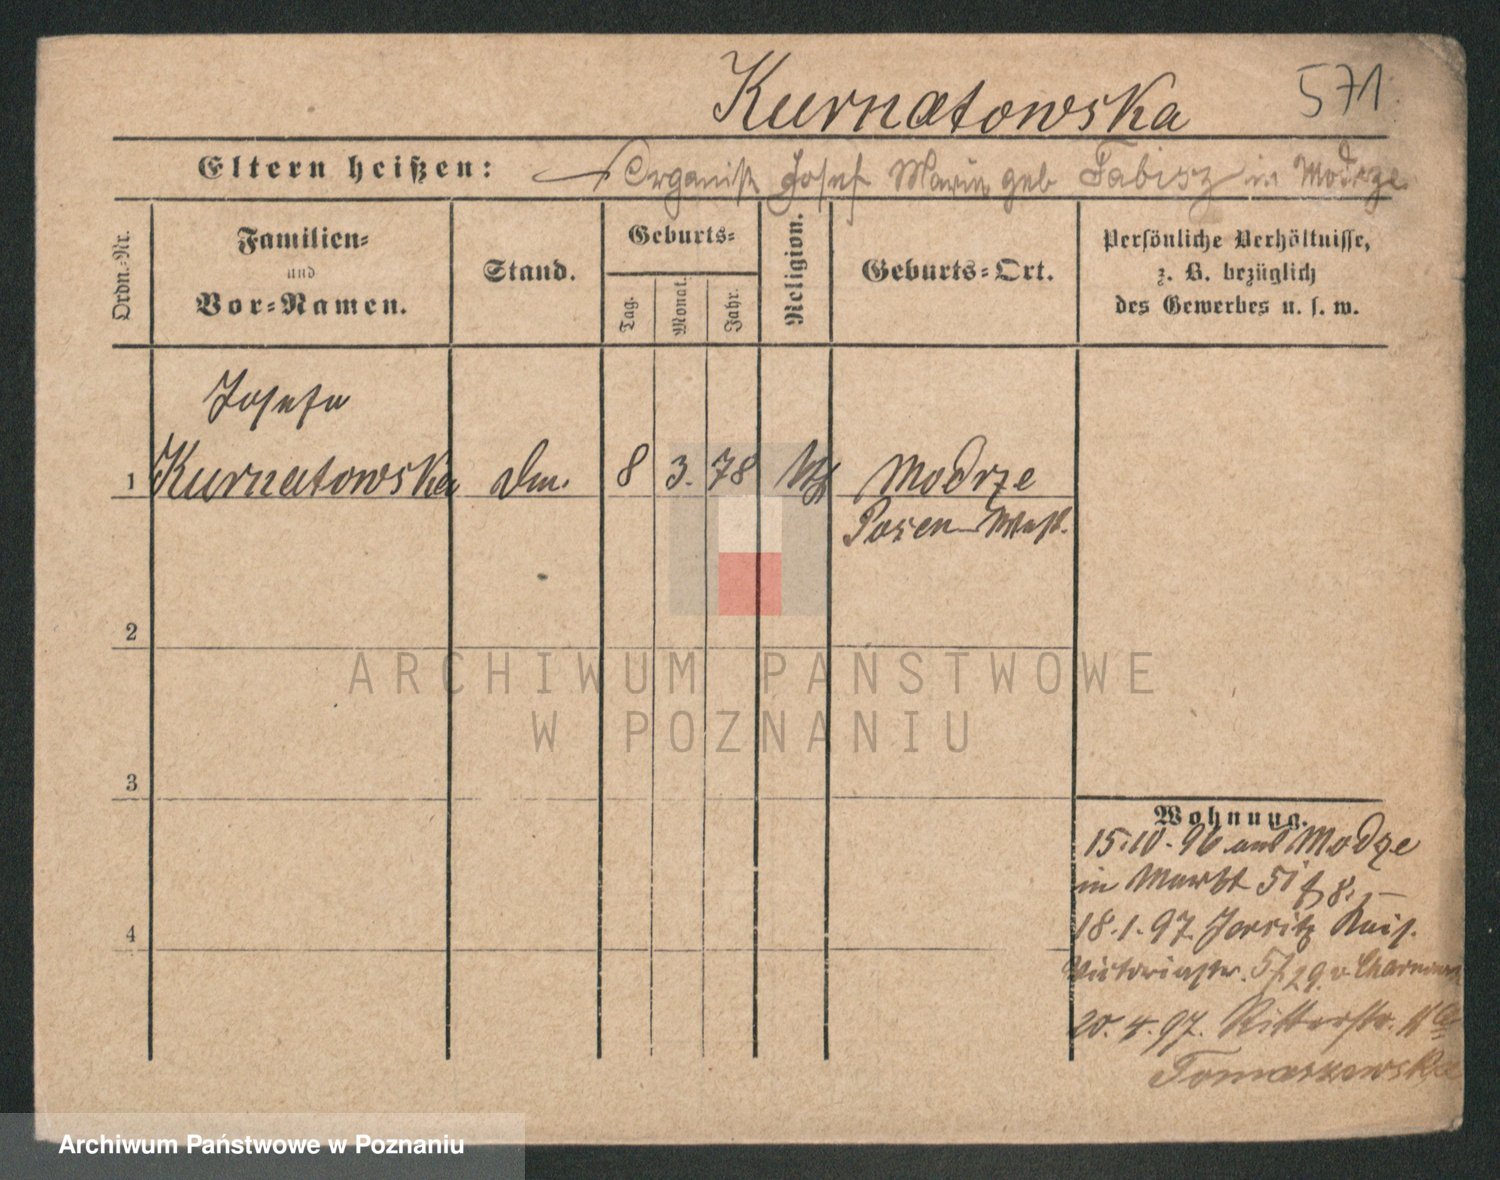 Kurnatowska 571
Eltern heißen: Organist Josef Maria geb Fabisz in Modrze
Ordn.-Nr.
Familien-
und
Vor-Namen.
Stand.
Geburts-
Tag.
Monat.
Jahr.
Religion.
Geburts-Ort.
Persönliche Verhältnisse,
z. B. bezüglich
des Gewerbes u. s. w.
Josefa
1 Kurnatowska 8 3. 78 Modrze
Posen West.
2
3
4
Wohnung.
15.10.96 aus Modrze
in Markt 51
18.1.97. Jersitz Kais.
Victoriastr.
20.4.97. Ritterstr.
Tomaszewska
ARCHIWUM PAŃSTWOWE
W POZNANIU
Archiwum Państwowe w Poznaniu